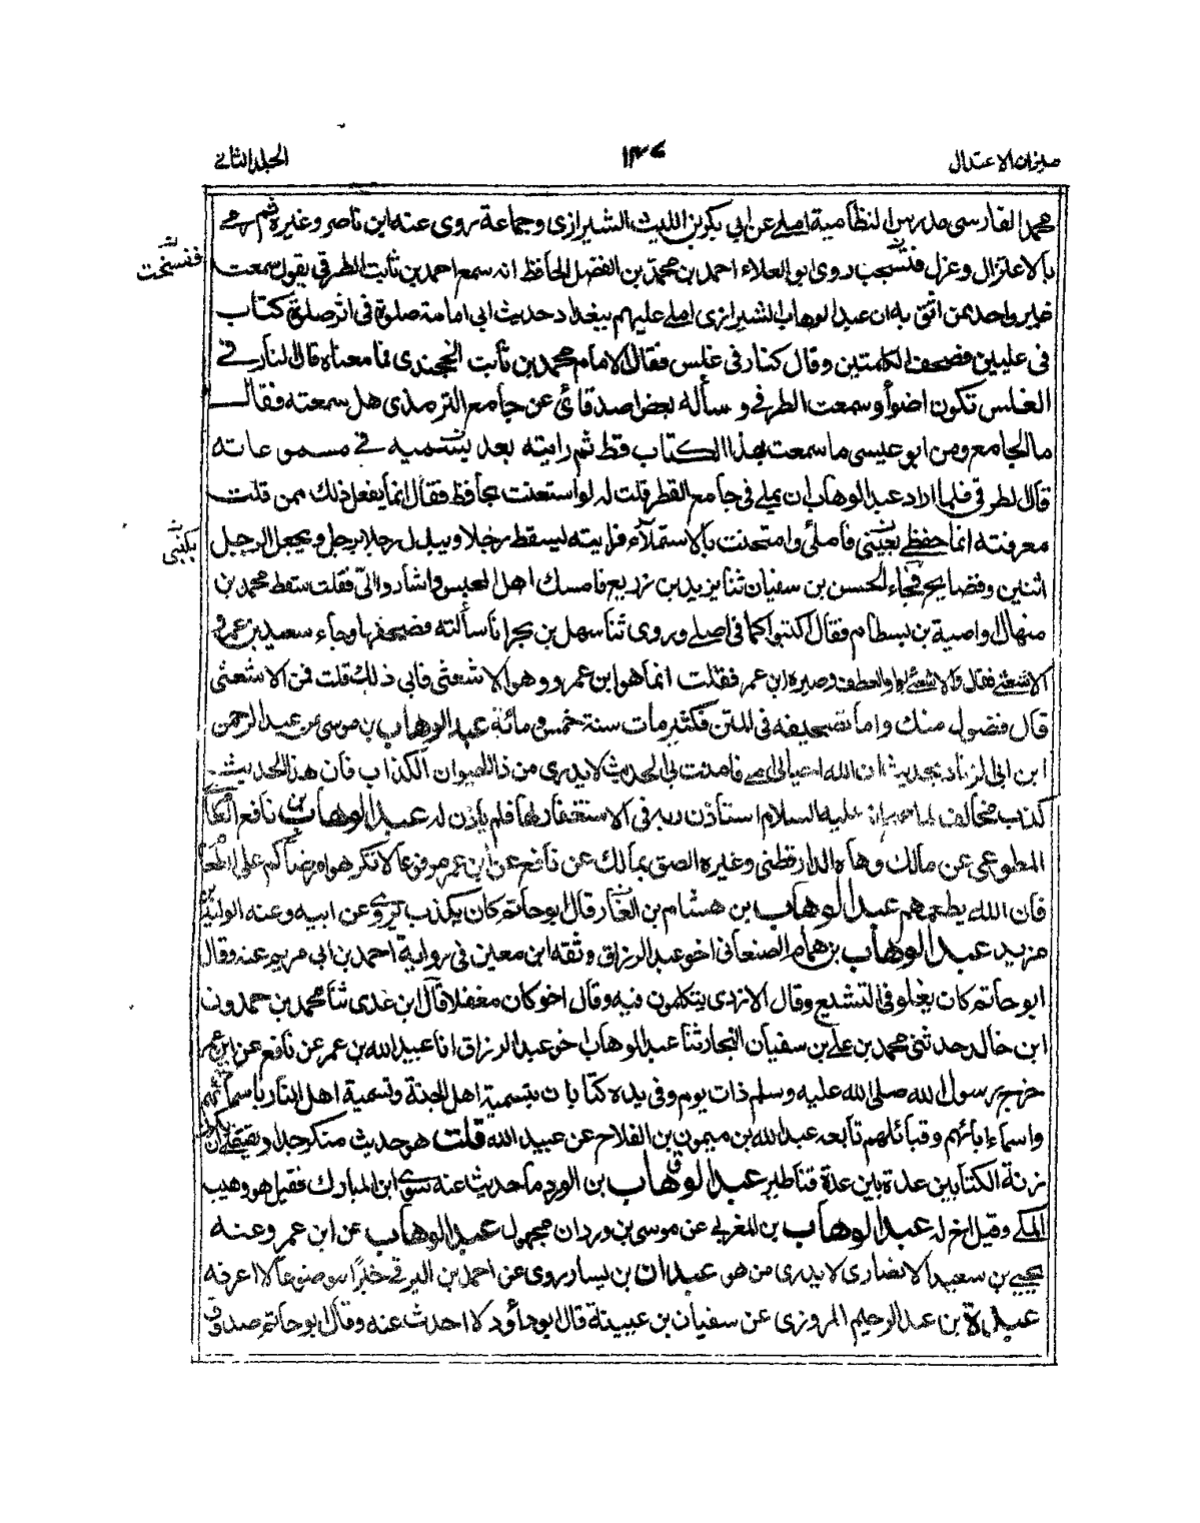 ميزان الاعتدال
١٣٧
المجلد الثاني
محمد الفارسي مدرس النظامية املى عن ابي بكر بن الليث الشيرازي وجماعة روى عنه ابن ناصر وغيره ثم رمي
بالاعتزال وعزل فتسحب روى ابو العلاء احمد بن محمد بن الفضل الحافظ انه سمع احمد بن ثابت الطرقي يقول سمعت
غير واحد ممن اثق به ان عبد الوهاب الشيرازي املى عليهم ببغداد حديث ابي امامة صلوة في اثر صلوة كتاب
في عليين فصحف الكلمتين وقال كنار في غلس فقال الامام محمد بن ثابت الخجندي ما معناه قال النار في
الغلس تكون اضوأ وسمعت الطرقي وسأله بعض اصدقائي عن جامع الترمذي هل سمعته فقال
ما الجامع ومن ابو عيسى ما سمعت بهذا الكتاب قط ثم رايته بعد يسميه في مسموعاته
قال الطرقي فلما اراد عبد الوهاب ان يملي في جامع القصر قلت له لو استعنت بحافظ فقال انما يفعل ذلك من قلت
معرفته انما حفظي يغنيني فاملى وامتحنت بالاستملاء فرايته يسقط رجلا ويبدل رجلا برجل ويجعل الرجل
اثنين وفضايح فجاء الحسن بن سفيان ثنا يزيد بن زريع فامسك اهل المجلس واشاروا الي فقلت سقط محمد بن
منهال او امية بن بسطام فقال اكتبوا كما في اصلي وروى ثنا سهل بن بحر انا سألته فصحفها وجاء سعيد بن عمرو
الاشعثي فقال والاشعثي بواو العطف وصيره ابن عمر فقلت انما هو ابن عمرو وهو الاشعثي فابى ذلك قلت فمن الاشعثي
قال فضول منك واما تصحيفه في المتن فكثير مات سنة خمس مائة عبد الوهاب بن موسى عن عبد الرحمن
ابن ابي الزناد بحديث ان الله احيا لي امي فامنت بي الحديث لا يدرى من ذا الحيوان الكذاب فان هذا الحديث
كذب مخالف لما صح انه عليه السلام استأذن ربه في الاستغفار لها فلم يأذن له عبد الوهاب بن نافع العا
المطوعي عن مالك وهاه الدارقطني وغيره الصق بمالك عن نافع عن ابن عمر مرفوعا لا تكرهوا مرضاكم على الطعا
فان الله يطعمهم عبد الوهاب بن هشام بن الغاز قال ابو حاتم كان يكذب يروي عن ابيه وعنه الوليد بن
مزيد عبد الوهاب بن همام الصنعاني اخو عبد الرزاق وثقه ابن معين في رواية احمد بن ابي مريم عنه وقال
ابو حاتم كان يغلو في التشيع وقال الازدي يتكلمون فيه وقال اخو كان مغفلا قال ابن عدي ثنا محمد بن حمدون
ابن خالد حدثني محمد بن علي بن سفيان النجار ثنا عبد الوهاب اخو عبد الرزاق انا عبيد الله بن عمر عن نافع عن ابن عمر
خرج رسول الله صلى الله عليه وسلم ذات يوم وفي يده كتابان بتسمية اهل الجنة وتسمية اهل النار باسمائهم
واسماء ابائهم وقبائلهم تابعه عبد الله بن ميمون بن القداح عن عبيد الله قلت هو حديث منكر جدا ويقتضي ان
زنة الكتابين عدة
قناطير عبد الوهاب بن الورد ما حديث عنه سوى ابن المبارك فقيل هو وهيب
المكي وقيل اخ له عبد الوهاب بن المغربي عن موسى بن وردان مجهول عبد الوهاب عن ابن عمر وعنه
يحيى بن سعيد الانصاري لا يدرى من هو عبدان بن يسار روى عن احمد بن البرقي خبرا موضوعا لا اعرفه
عبدة بن عبد الرحيم المروزي عن سفيان بن عيينة قال ابو داؤد لا احدث عنه وقال ابو حاتم صدوق